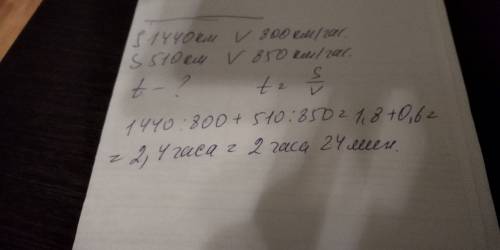 S 1440км V 800км/час.
S 510км V 850км/час.
t - ? t = S/V
1440:800 + 510:850 = 1,8 + 0,6 =
= 2,4 часа = 2 часа 24 мин.